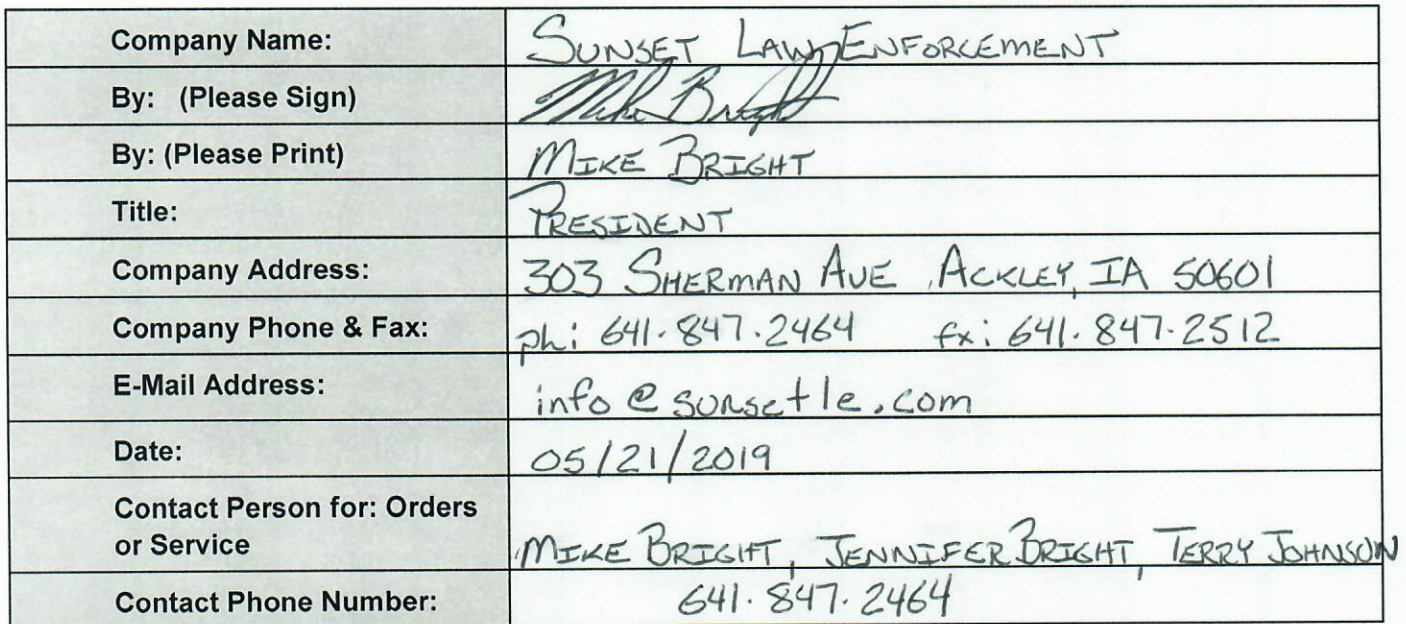 Company Name: SUNSET LAW ENFORCEMENT
By: (Please Sign) Mike Bright
By: (Please Print) MIKE BRIGHT
Title: PRESIDENT
Company Address: 303 SHERMAN AVE, ACKLEY, IA 50601
Company Phone & Fax: ph: 641.847.2464 fx: 641.847.2512
E-Mail Address: info@sunsetle.com
Date: 05/21/2019
Contact Person for: Orders
or Service MIKE BRIGHT, JENNIFER BRIGHT, TERRY JOHNSON
Contact Phone Number: 641.847.2464